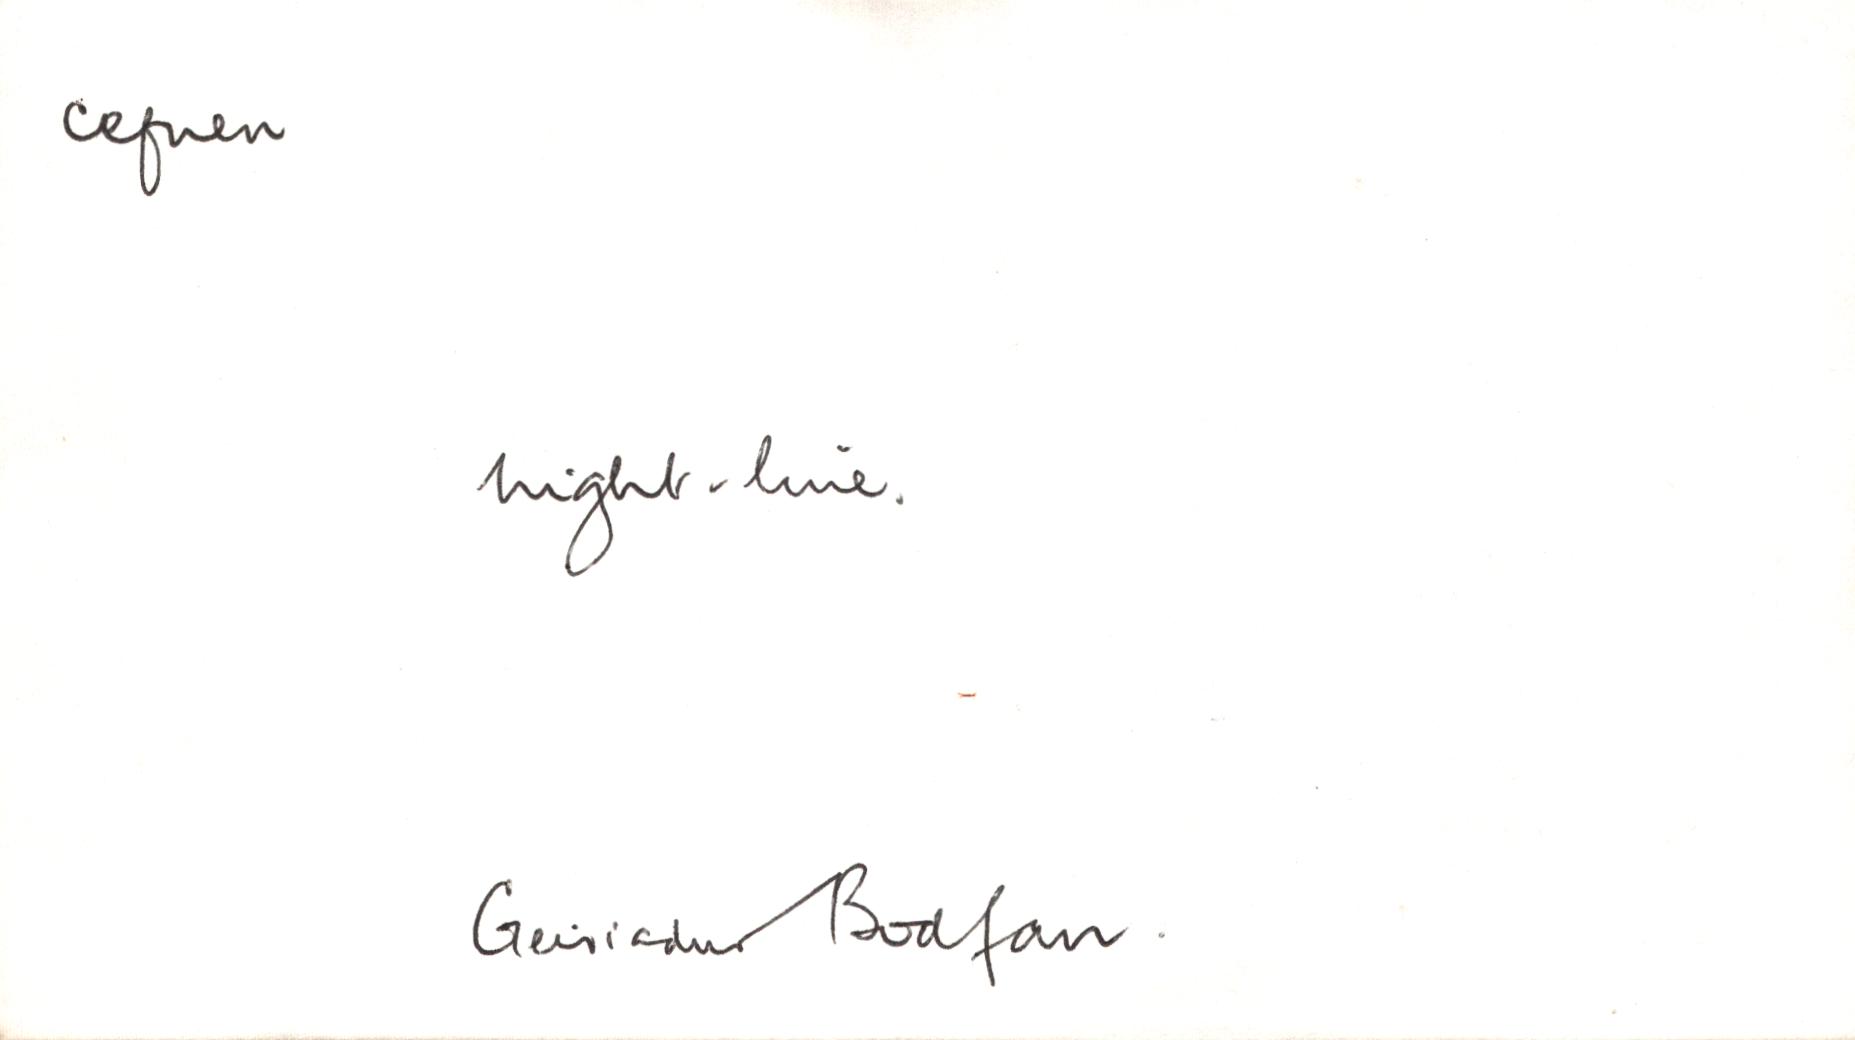 cefnen
night-line.
Geiriadur Bodfan.